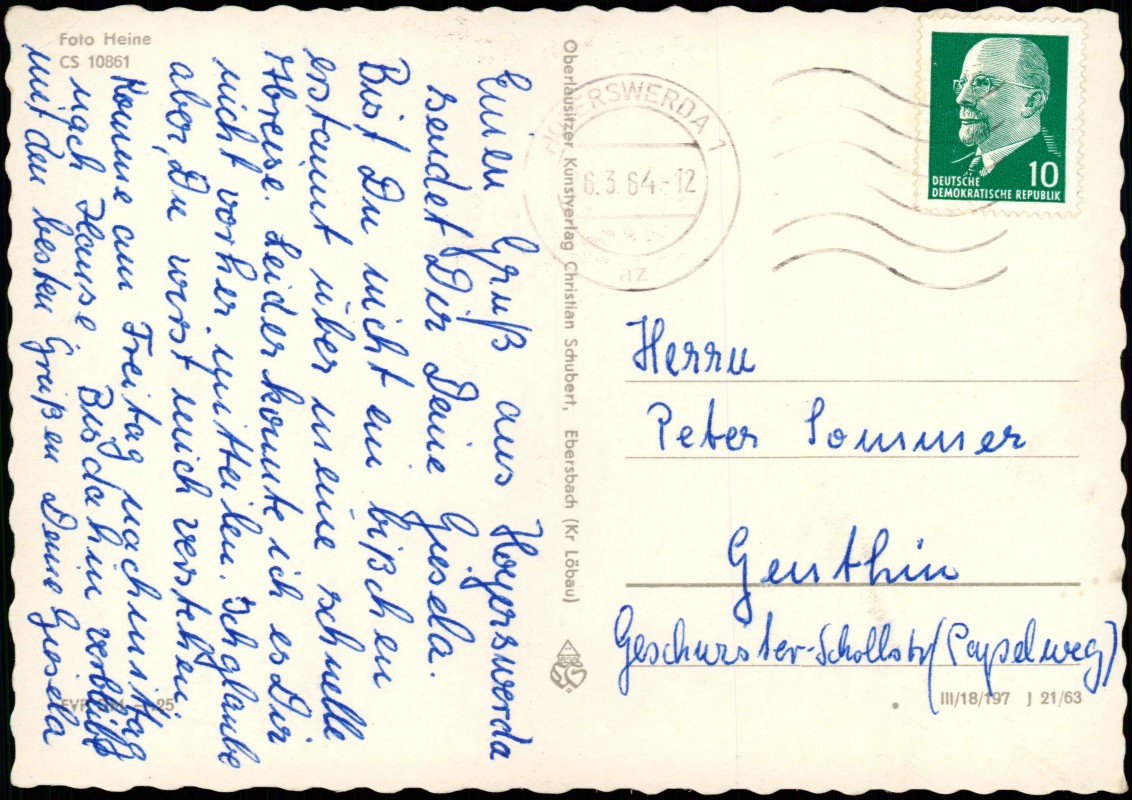 Foto Heine
CS 10861
Einen Gruß aus Hoyerswerda
sendet Dir Deine Giesela.
Bist Du nicht ein bißchen
erstaunt über meine schnelle
Abreise. Leider konnte ich es Dir
nicht vorher mitteilen. Ich glaube
aber, Du wirst mich verstehen.
Komme am Freitag nachmittag
nach Hause. Bis dahin verbleibt
mit den besten Grüßen Deine Giesela
EVP
25
Oberlausitzer Kunstverlag Christian Schubert, Ebersbach (Kr Löbau)
HOYERSWERDA 1
6.3.64-12
az
DEUTSCHE
DEMOKRATISCHE REPUBLIK
10
Herrn
Peter Sommer
Genthin
Geschwister-Schollstr (Pappelweg)
III/18/197 J 21/63